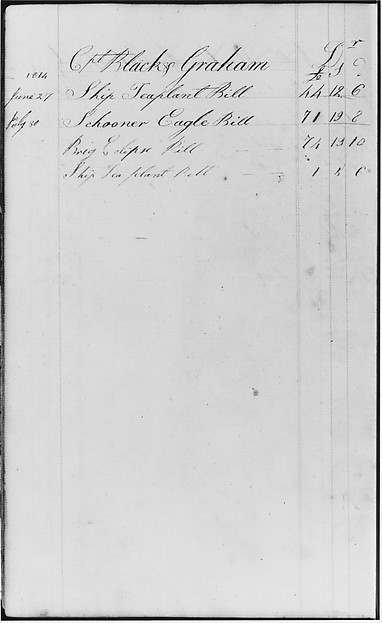 Cpt Black & Graham Dr
1814 £ s
June 27 Ship Teaplant Bill 44 12 6
July 30 Schooner Eagle Bill 71 19 8
Brig Eclipse Bill 74 13 10
Ship Teaplant Bill 1